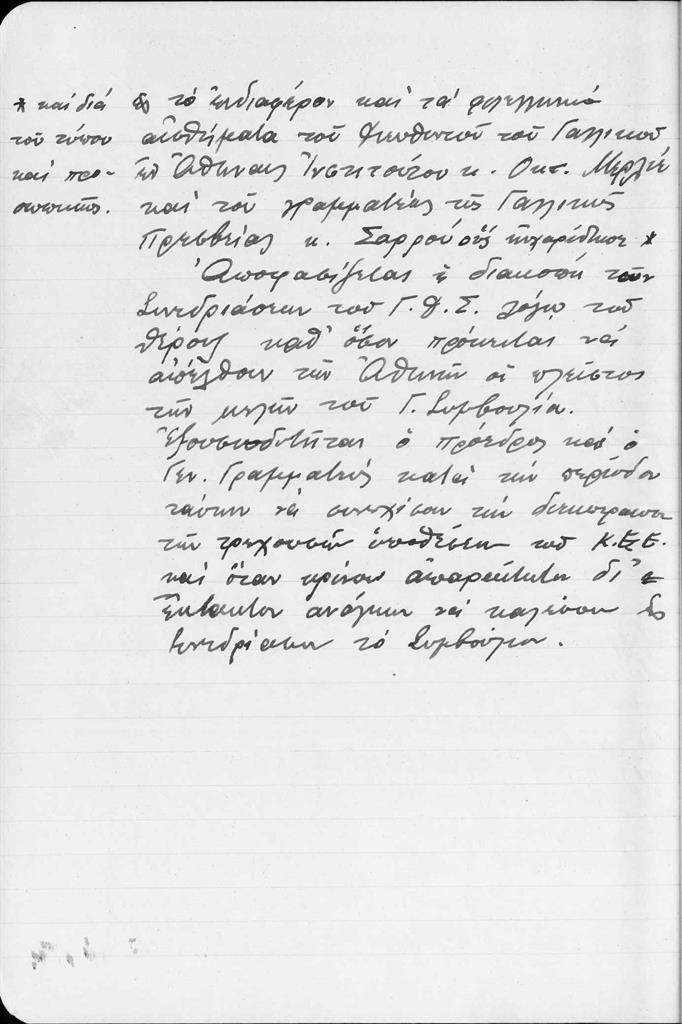 * καί διά
τοῦ τύπου
καί προ-
σωπικῶς.
εἰς τό ἐνδιαφέρον καί τά φιλελληνικά
αἰσθήματα τοῦ Διευθυντοῦ τοῦ Γαλλικοῦ
ἐν Ἀθήναις Ἰνστιτούτου κ. Οκτ. Μερλιέ
καί τοῦ γραμματέως τῆς Γαλλικῆς
Πρεσβείας κ. Σαρρού οὕς ηὐχαρίστησε *
Ἀποφασίζεται ἡ διακοπή τῶν
Συνεδριάσεων τοῦ Γ. Σ. λόγῳ τοῦ
θέρους καθ' ὅσον πρόκειται νά
τήν Ἀθηνῶν οἱ πλεῖστοι
τῶν μελῶν τοῦ Γ. Συμβουλίου.
Ἐξουσιοδοτεῖται ὁ πρόεδρος καί ὁ
Γεν. Γραμματεύς κατά τήν περίοδον
ταύτην νά συνεχίσουν τήν διεκπεραίωσιν
τῶν τρεχουσῶν ὑποθέσεων τοῦ Κ.Ε.Ε.
καί ὅταν κρίνουν ἀπαραίτητον δι'
ἔκτακτον ἀνάγκην νά καλέσουν εἰς
συνεδρίασιν τό Συμβούλιον.